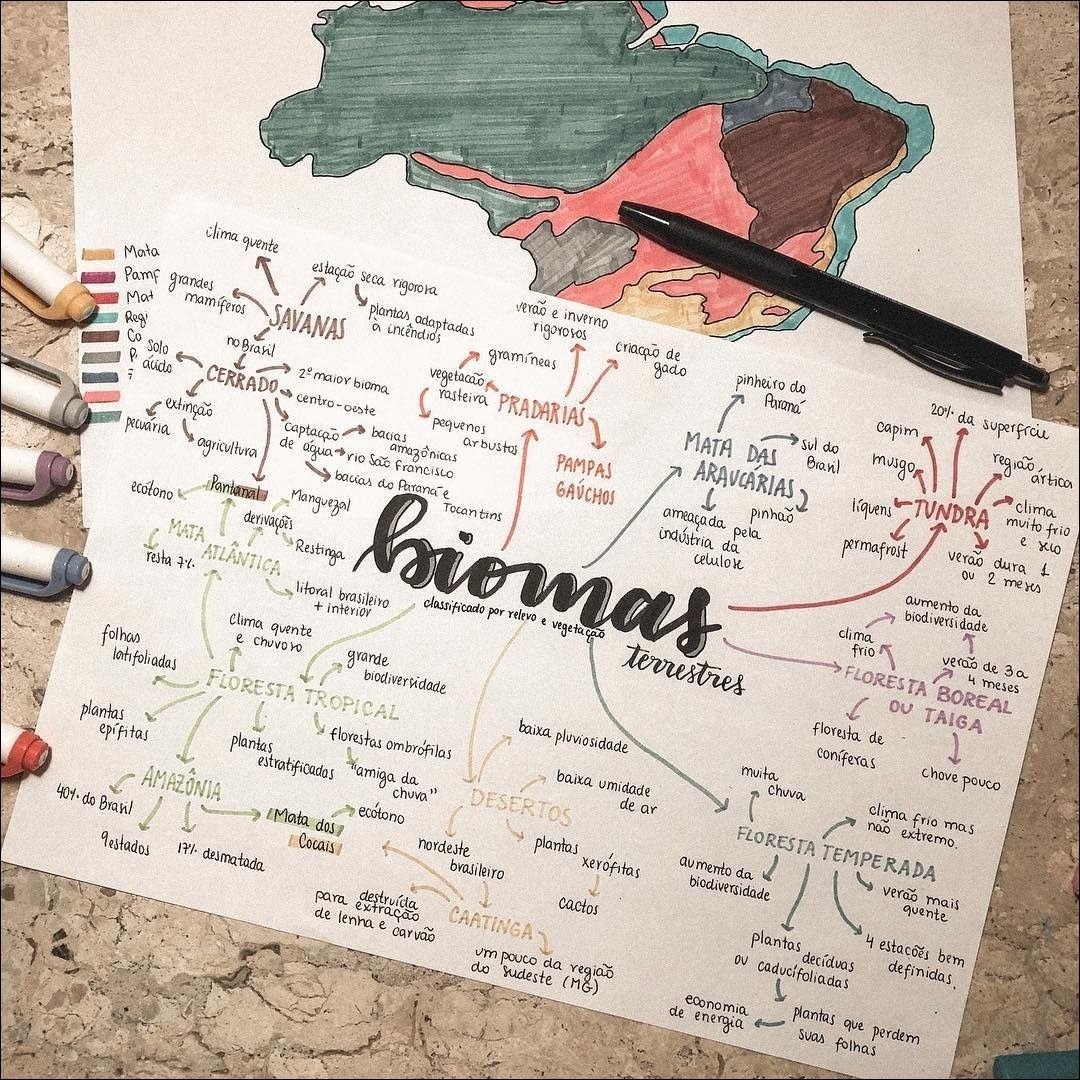 Mata
Pamp
Mat
Regi
Co
P.
clima quente
grandes
mamíferos
estação seca rigorosa
plantas adaptadas
à incêndios
SAVANAS
no Brasil
CERRADO
solo
ácido
2º maior bioma
centro-oeste
captação
de água
bacias
amazônicas
rio São Francisco
bacias do Paraná e
Tocantins
extinção
pecuária
agricultura
Pantanal
ecótono
Manguezal
derivações
Restinga
MATA
ATLÂNTICA
resta 7%
litoral brasileiro
+ interior
verão e inverno
rigorosos
criação de
gado
gramíneas
vegetação
rasteira
pequenos
arbustos
PRADARIAS
PAMPAS
GAÚCHOS
pinheiro do
Paraná
MATA DAS
ARAUCÁRIAS
sul do
Brasil
pinhão
ameaçada pela
indústria da
celulose
20% da superfície
capim
musgo
líquens
permafrost
TUNDRA
região ártica
clima
muito frio
e seco
verão dura 1
ou 2 meses
biomas
classificado por relevo e vegetação
terrestres
aumento da
biodiversidade
clima
frio
verão de 3 a
4 meses
FLORESTA BOREAL
OU TAIGA
floresta de
coníferas
chove pouco
clima quente
e chuvoso
folhas
latifoliadas
grande
biodiversidade
FLORESTA TROPICAL
plantas
epífitas
plantas
estratificadas
florestas ombrófilas
"amiga da
chuva"
AMAZÔNIA
40% do Brasil
9 estados
17% desmatada
Mata dos
Cocais
ecótono
baixa pluviosidade
baixa umidade
de ar
DESERTOS
nordeste
brasileiro
plantas
xerófitas
cactos
CAATINGA
destruída
para extração
de lenha e carvão
um pouco da região
do sudeste (MG)
muita
chuva
clima frio mas
não extremo.
FLORESTA TEMPERADA
aumento da
biodiversidade
verão mais
quente
4 estacões bem
definidas.
plantas decíduas
ou caducifoliadas
plantas que perdem
suas folhas
economia
de energia